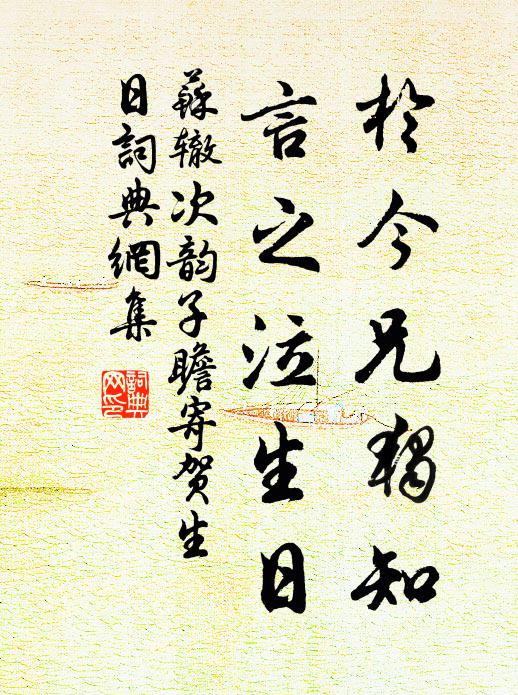 於今兄独知
言之泣生日
蘇辙次韵子瞻寄贺生
日詞典網集
詞典
网印